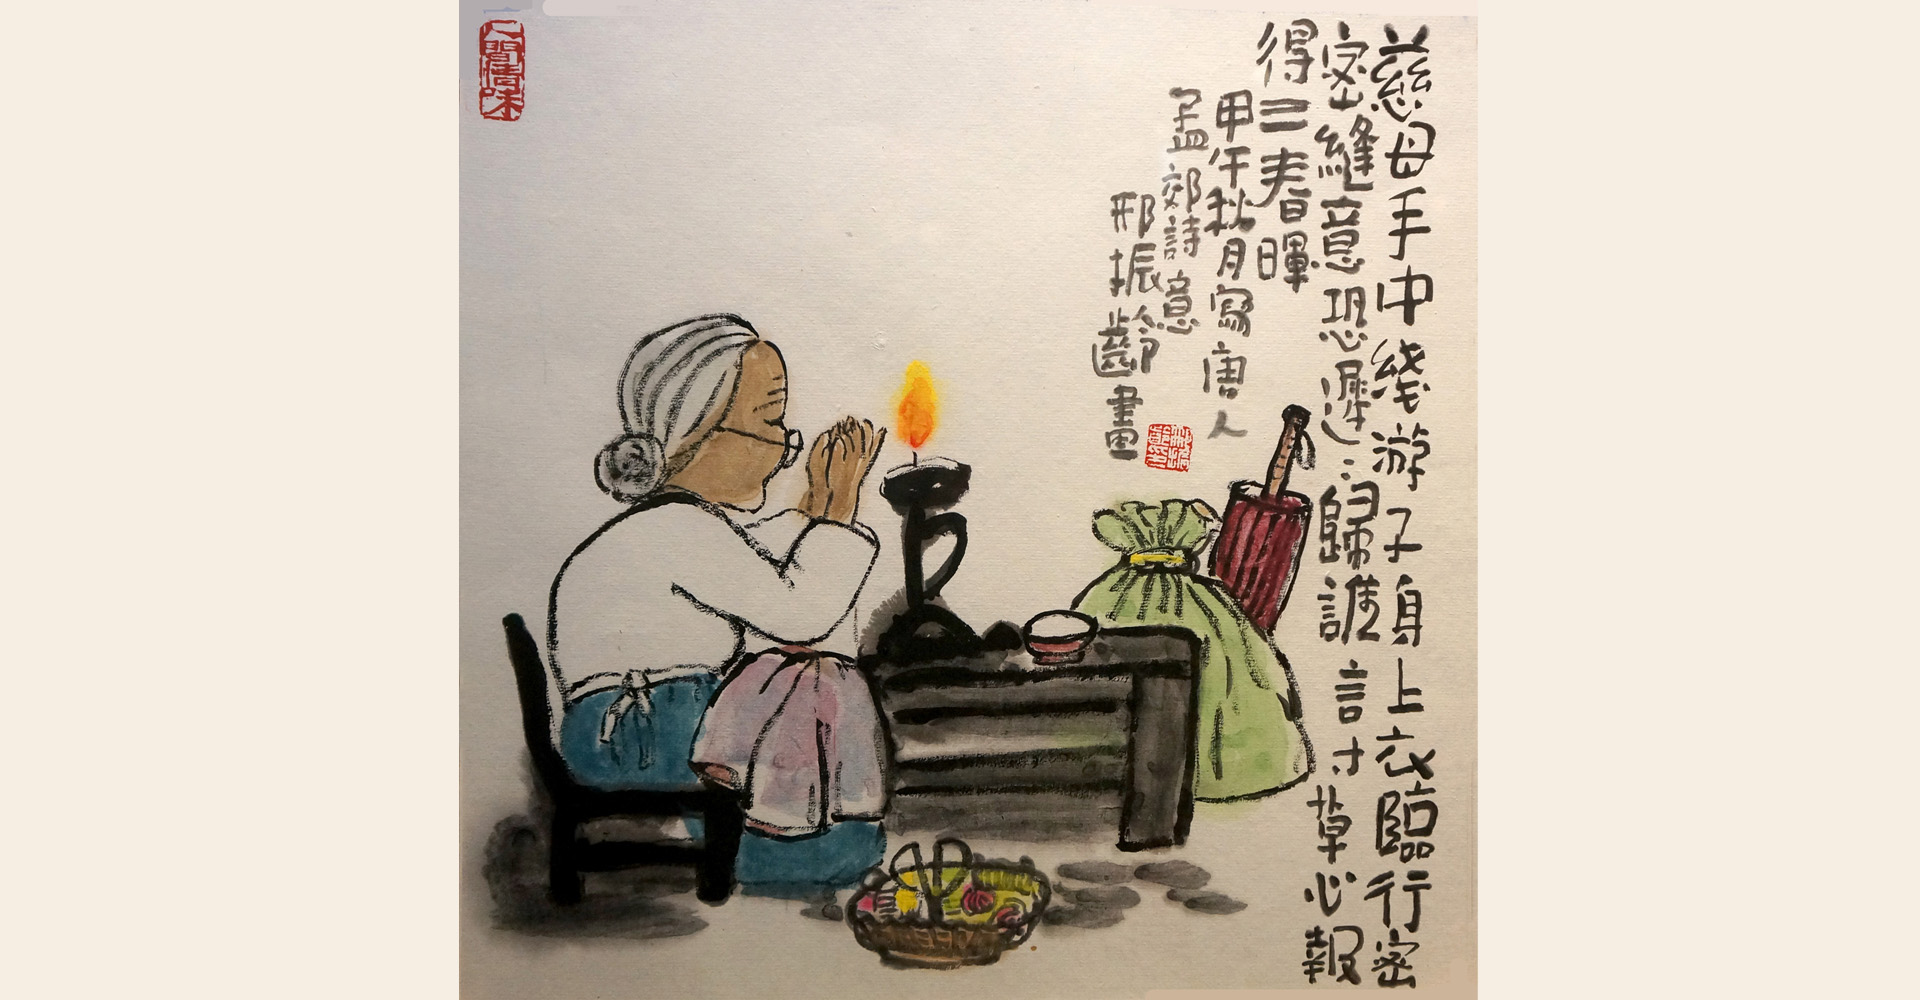 慈母手中綫游子身上衣臨行密
密縫意恐遲〻歸誰言寸草心報
得三春暉
甲午秋月寫唐人
孟郊詩意
邢振齡畫
邢振齡印
人間情味